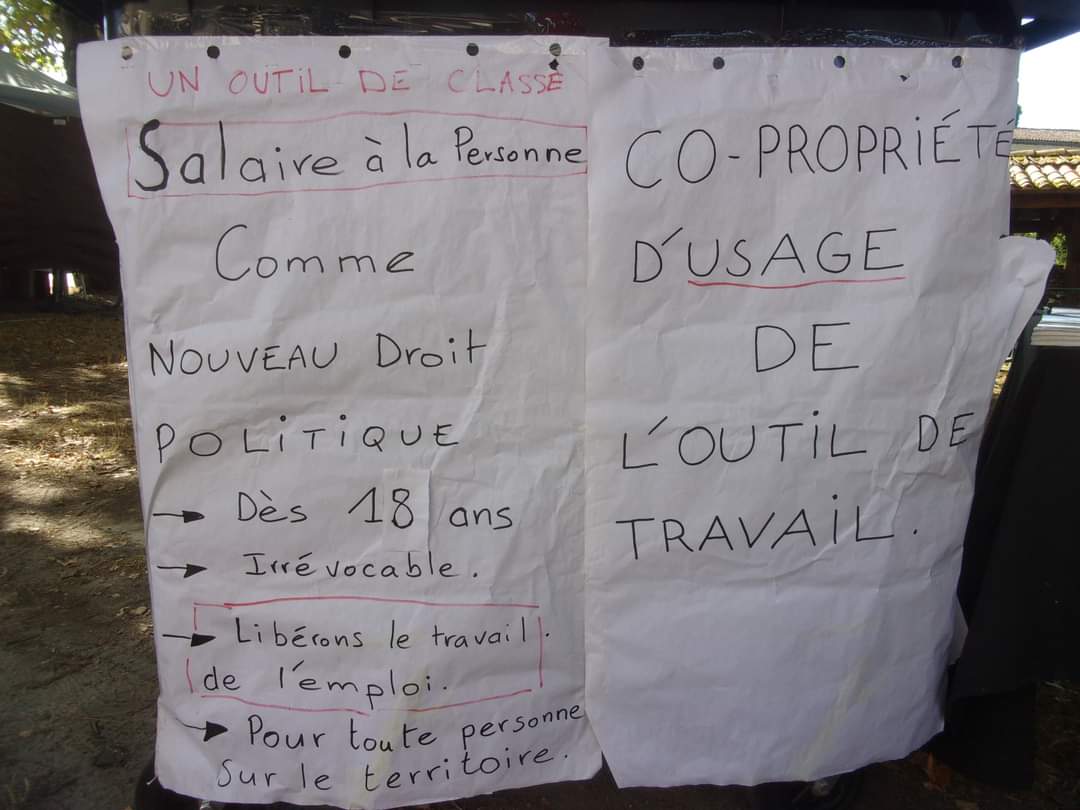 UN OUTIL DE CLASSE
Salaire à la Personne
Comme
NOUVEAU Droit
POLITIQUE
→ Dès 18 ans
→ Irrévocable.
→ Libérons le travail.
de l'emploi.
→ Pour toute personne
sur le territoire.
CO-PROPRIÉTÉ
D'USAGE
DE
L'OUTIL DE
TRAVAIL.